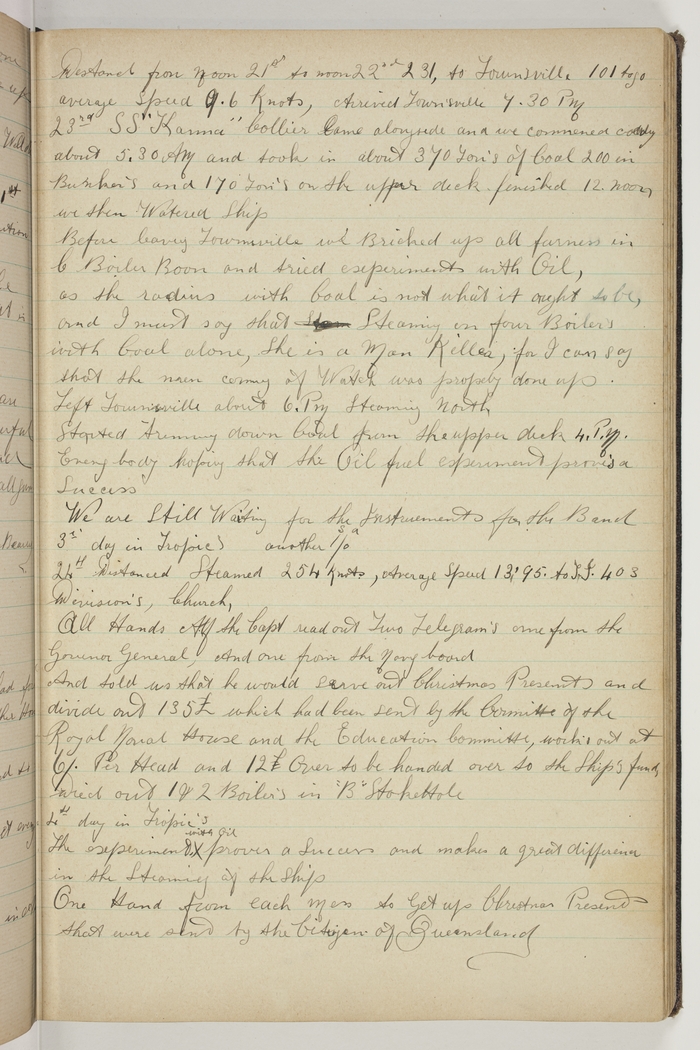 Distanct from Noon 21st to noon 22nd 231, to Townsville 101 to go
average Speed 9.6 Knots, Arrived Townsville 7.30 PM
23rd SS "Karma" Collier Came alongside and we commened
about 5.30 AM and took in about 370 Ton's of Coal 200 in
Bunker's and 170 Ton's on the upper deck finished 12. Noon
we then Watered Ship
Before leavig Townsville we Bricked up all furness in
B Boiler Room and tried experiments with Oil,
as the radius with Coal is not what it ought to be,
and I must say that Steaming on four Boiler's
with Coal alone, She is a Man Killer, for I can say
that the men coming of Watch was properly done up.
Left Townsville about 6. PM Steaming North
Started Triming down Coal from the upper deck 4. P.M.
Everybody hoping that the Oil fuel experiment provis a
Success
We are Still Waiting for the Instruements for the Band
3rd day in Tropic's another 1/- a
24th Distanced Steamed 254 Knots, Average Speed 13.95. to T.I. 403
Division's, Church,
All Hands Aft the Capt read out Two Telegram's one from the
Govenor General, And one from the Navy board
And told us that he would serve out Christmas Presents and
divide out 135£ which had been sent by the Committe of the
Royal Naval House and the Education Committe, works out at
6/. Per Head and 12£ Over to be handed over to the Ship's fund
out 1 & 2 Boiler's in "B" Stokehole
4th day in Tropic's
with Oil
The experiment prover a Success and makes a great differince
in the Steaming of the Ship
One Hand from each Mess to Get up Christmas Presents
that were send by the Citizen of Queensland